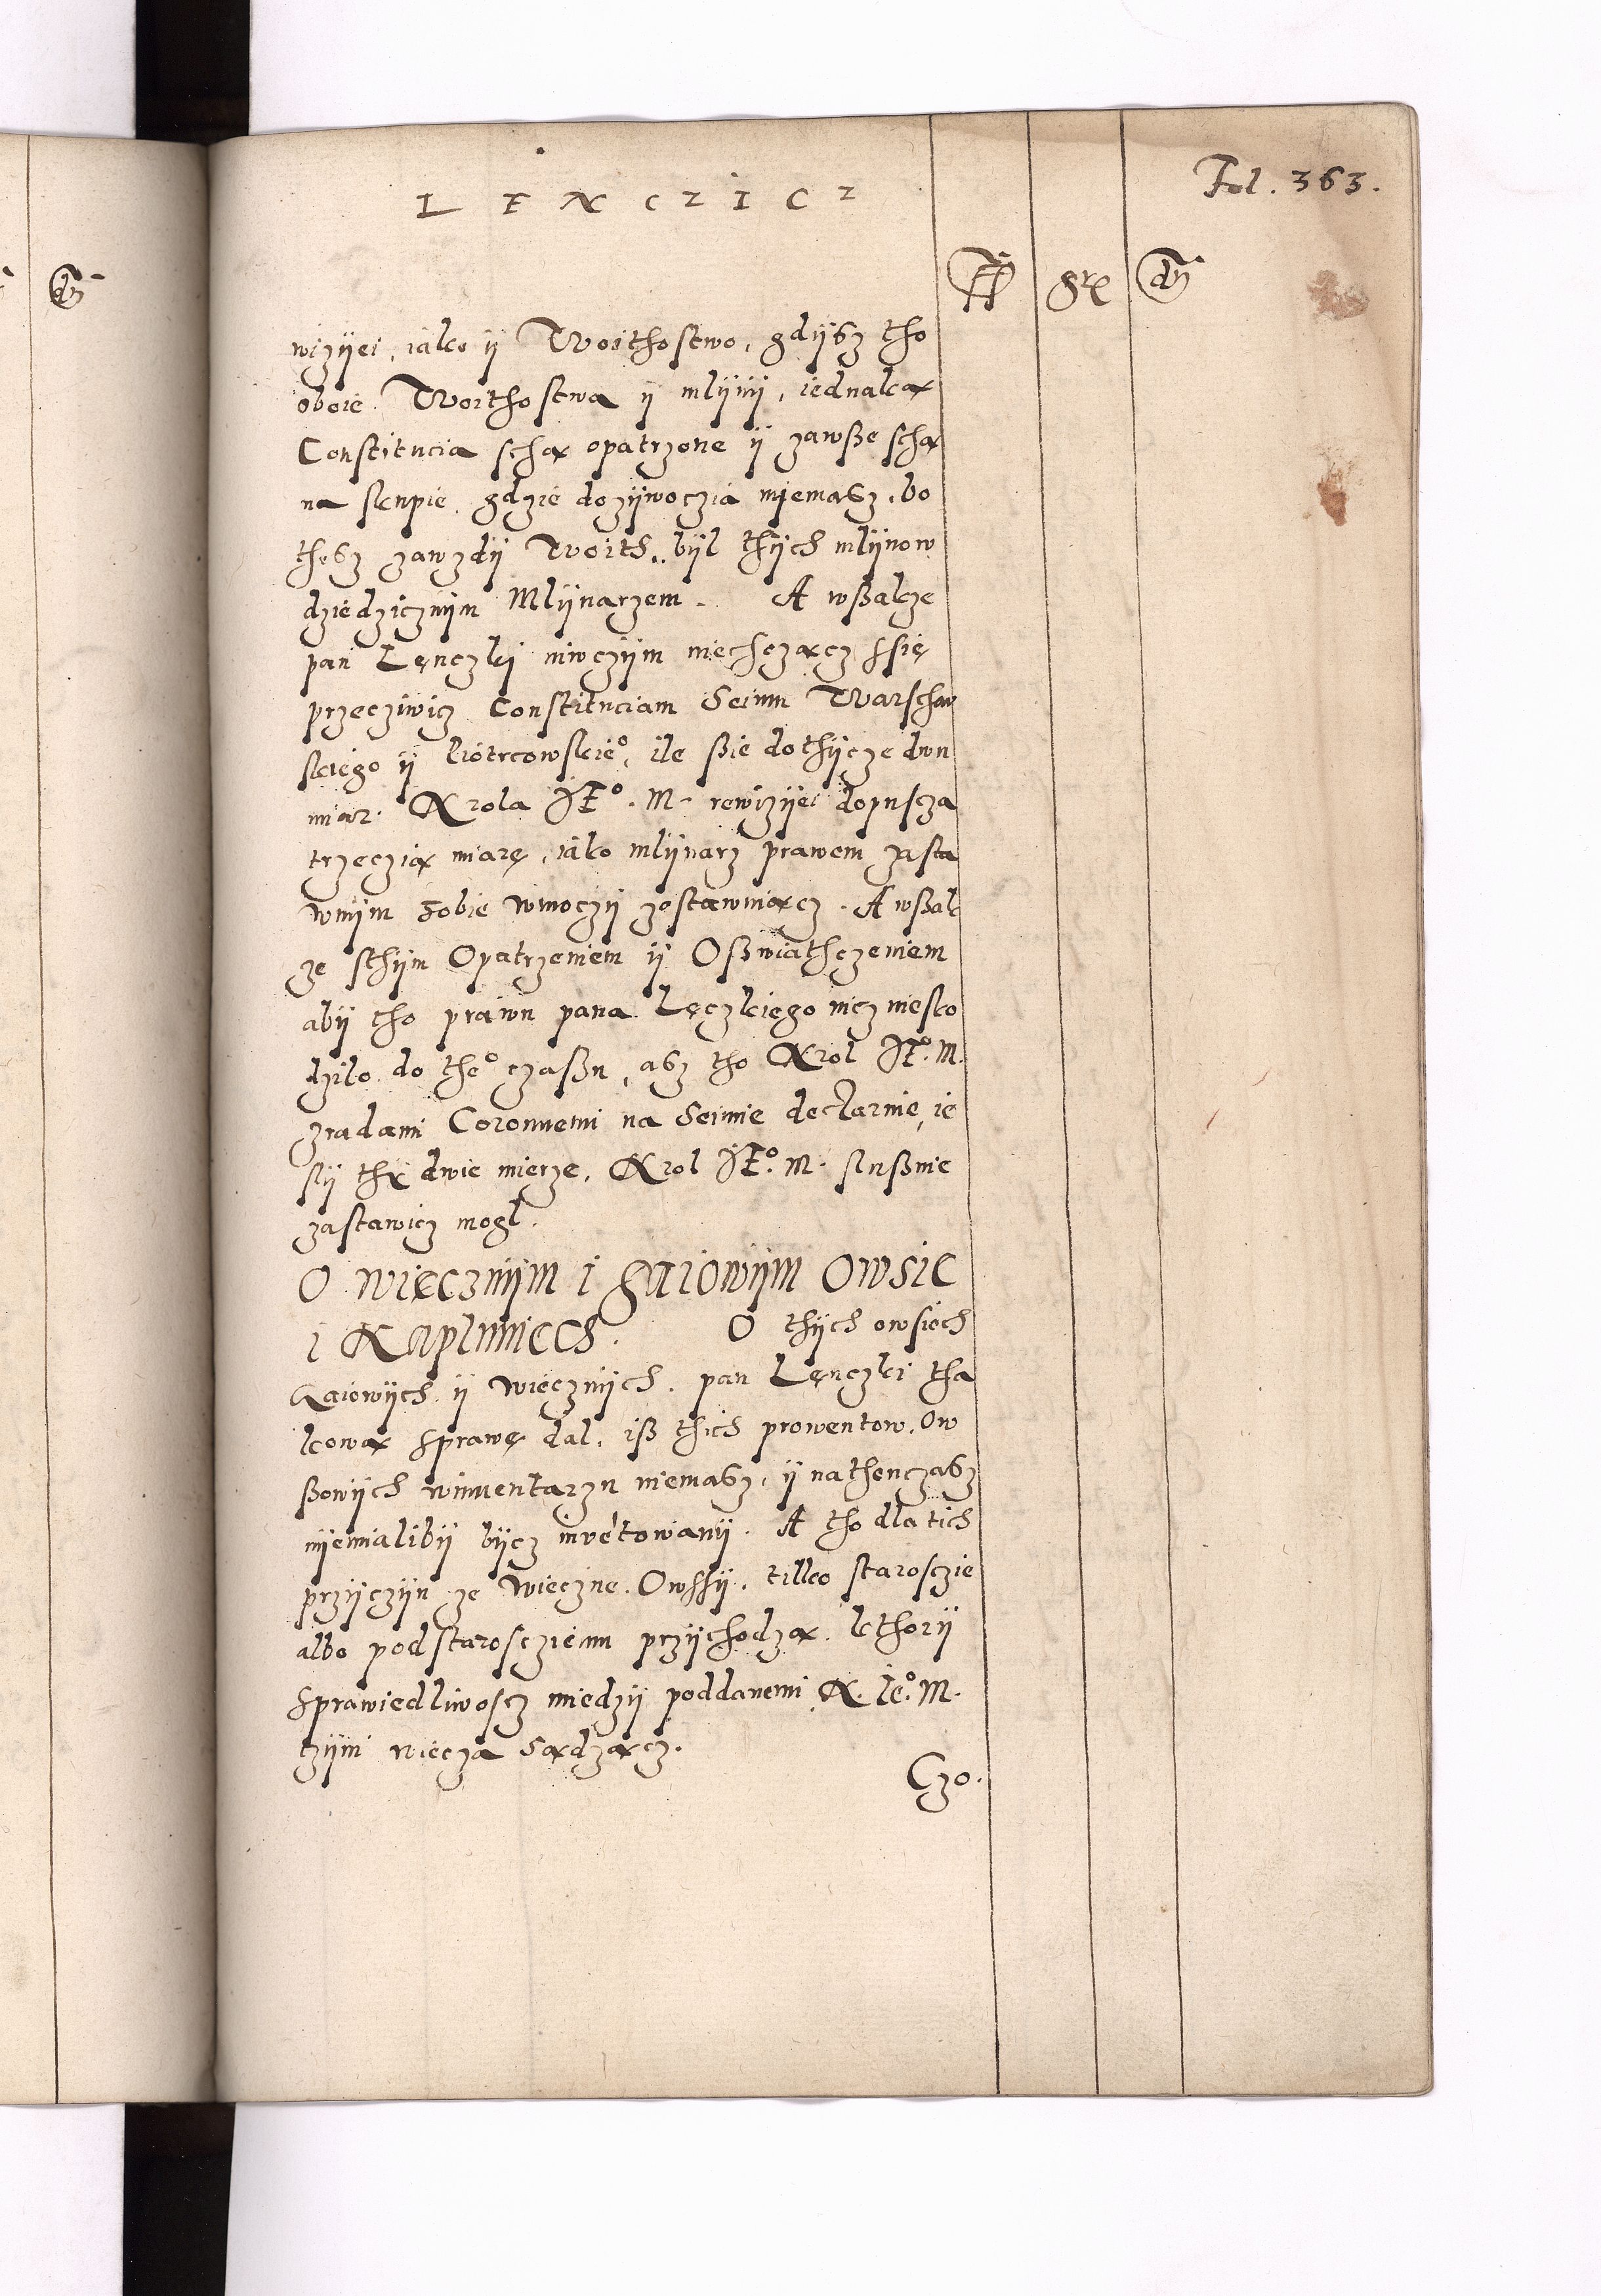 LENCZICZ
Fol. 363.
ff gr dn
wizÿei, iako ÿ Woithostwo, gdÿsz tho
oboie Woithostwa ÿ mlÿnÿ, iednaką
Constitucia schą opatrzone ÿ zawße schą
na skupie, gdzie dozÿwoczia niemasz, bo
thesz zawzdÿ Woith bÿl thÿch mlÿnow
dziedzicznÿm Mlÿnarzem. A wßakze
pan Lęnczki niwczÿm niechcząncz ssię
przecziwicz Constituciam Seimu Warschaw
skiego ÿ Piotrcowskie°, ile ßie dothÿcze dwu
miar. Krola JE°. M. rewizÿei dopuscza
trzeczią miarę, iako mlÿnarz prawem zasta
wnÿm sobie wmoczÿ zostawuiącz. A wßak
ze sthÿm Opatrzeniem ÿ Oßwiathczeniem
abÿ tho prawu pana Lęczkiego nicz niesko
dzilo do the° czaßu, asz tho Krol JE°. M.
zradami Coronnemi na Seimie declaruie, ie
slÿ thÿ dwie mierze, Krol JE°. M. slußnie
zastawicz mogl.
O wiecznÿm i gaiowÿm Owsie
i Kapluniech. O thÿch owsiech
Gaiowÿch ÿ wiecznÿch, pan Lęnczki tha
kową sprawę dal, iß thich prowentow, Ow
ßowÿch winwentarzu niemasz, ÿ nathenczasz
niemialibÿ bÿcz inwentowanÿ. A tho dla tich
przÿczÿn ze wieczne Owssÿ, tilko staroscie
albo podstarosciemu przÿchodzą, kthorÿ
sprawiedliwoscz miedzÿ poddanemi K. Je°. M.
czÿni wiecza sądząncz.
Czo.